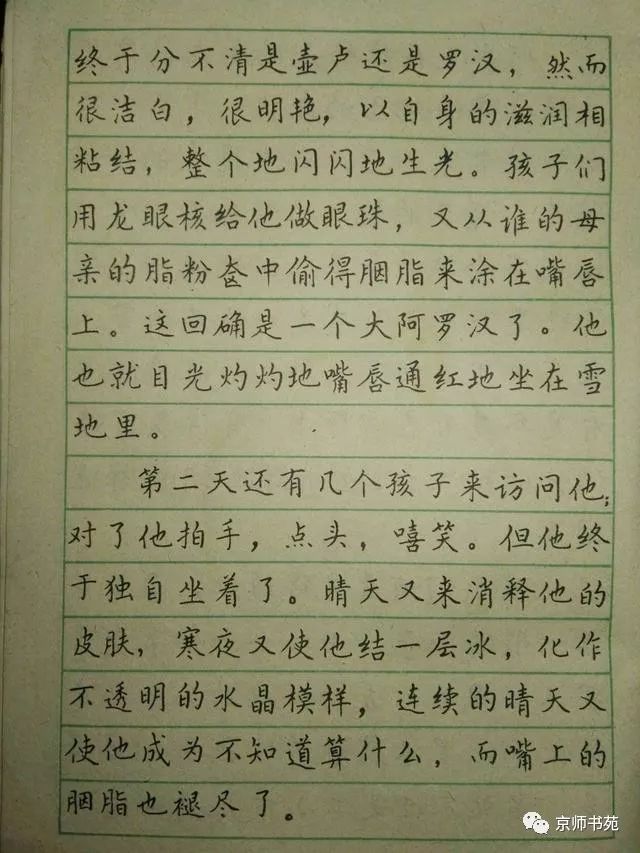 终于分不清是壶卢还是罗汉，然而
很洁白，很明艳，以自身的滋润相
粘结，整个地闪闪地生光。孩子们
用龙眼核给他做眼珠，又从谁的母
亲的脂粉奁中偷得胭脂来涂在嘴唇
上。这回确是一个大阿罗汉了。他
也就目光灼灼地嘴唇通红地坐在雪
地里。
第二天还有几个孩子来访问他；
对了他拍手，点头，嘻笑。但他终
于独自坐着了。晴天又来消释他的
皮肤，寒夜又使他结一层冰，化作
不透明的水晶模样，连续的晴天又
使他成为不知道算什么，而嘴上的
胭脂也褪尽了。
京师书苑